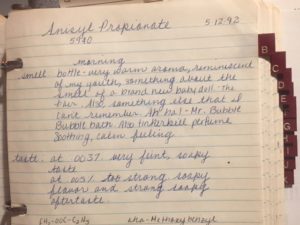 Anisyl Propionate 5-12-92
5940
morning
smell: bottle - very warm aroma, reminiscent
of my youth, something about the
smell of a brand new baby doll - the
hair. Also something else that I
can't remember. Ah ha! - Mr. Bubble
Bubble bath. Also tinkerbell perfume
Soothing, calm feeling
taste: at .003% very faint, soapy
taste
at .005% too strong soapy
flavor and strong soapy
aftertaste.
B
C
D